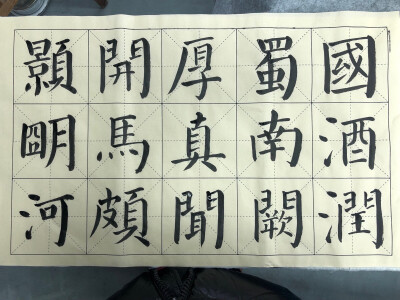 國酒潤
蜀南闕
厚真聞
開馬頗
顥朙河